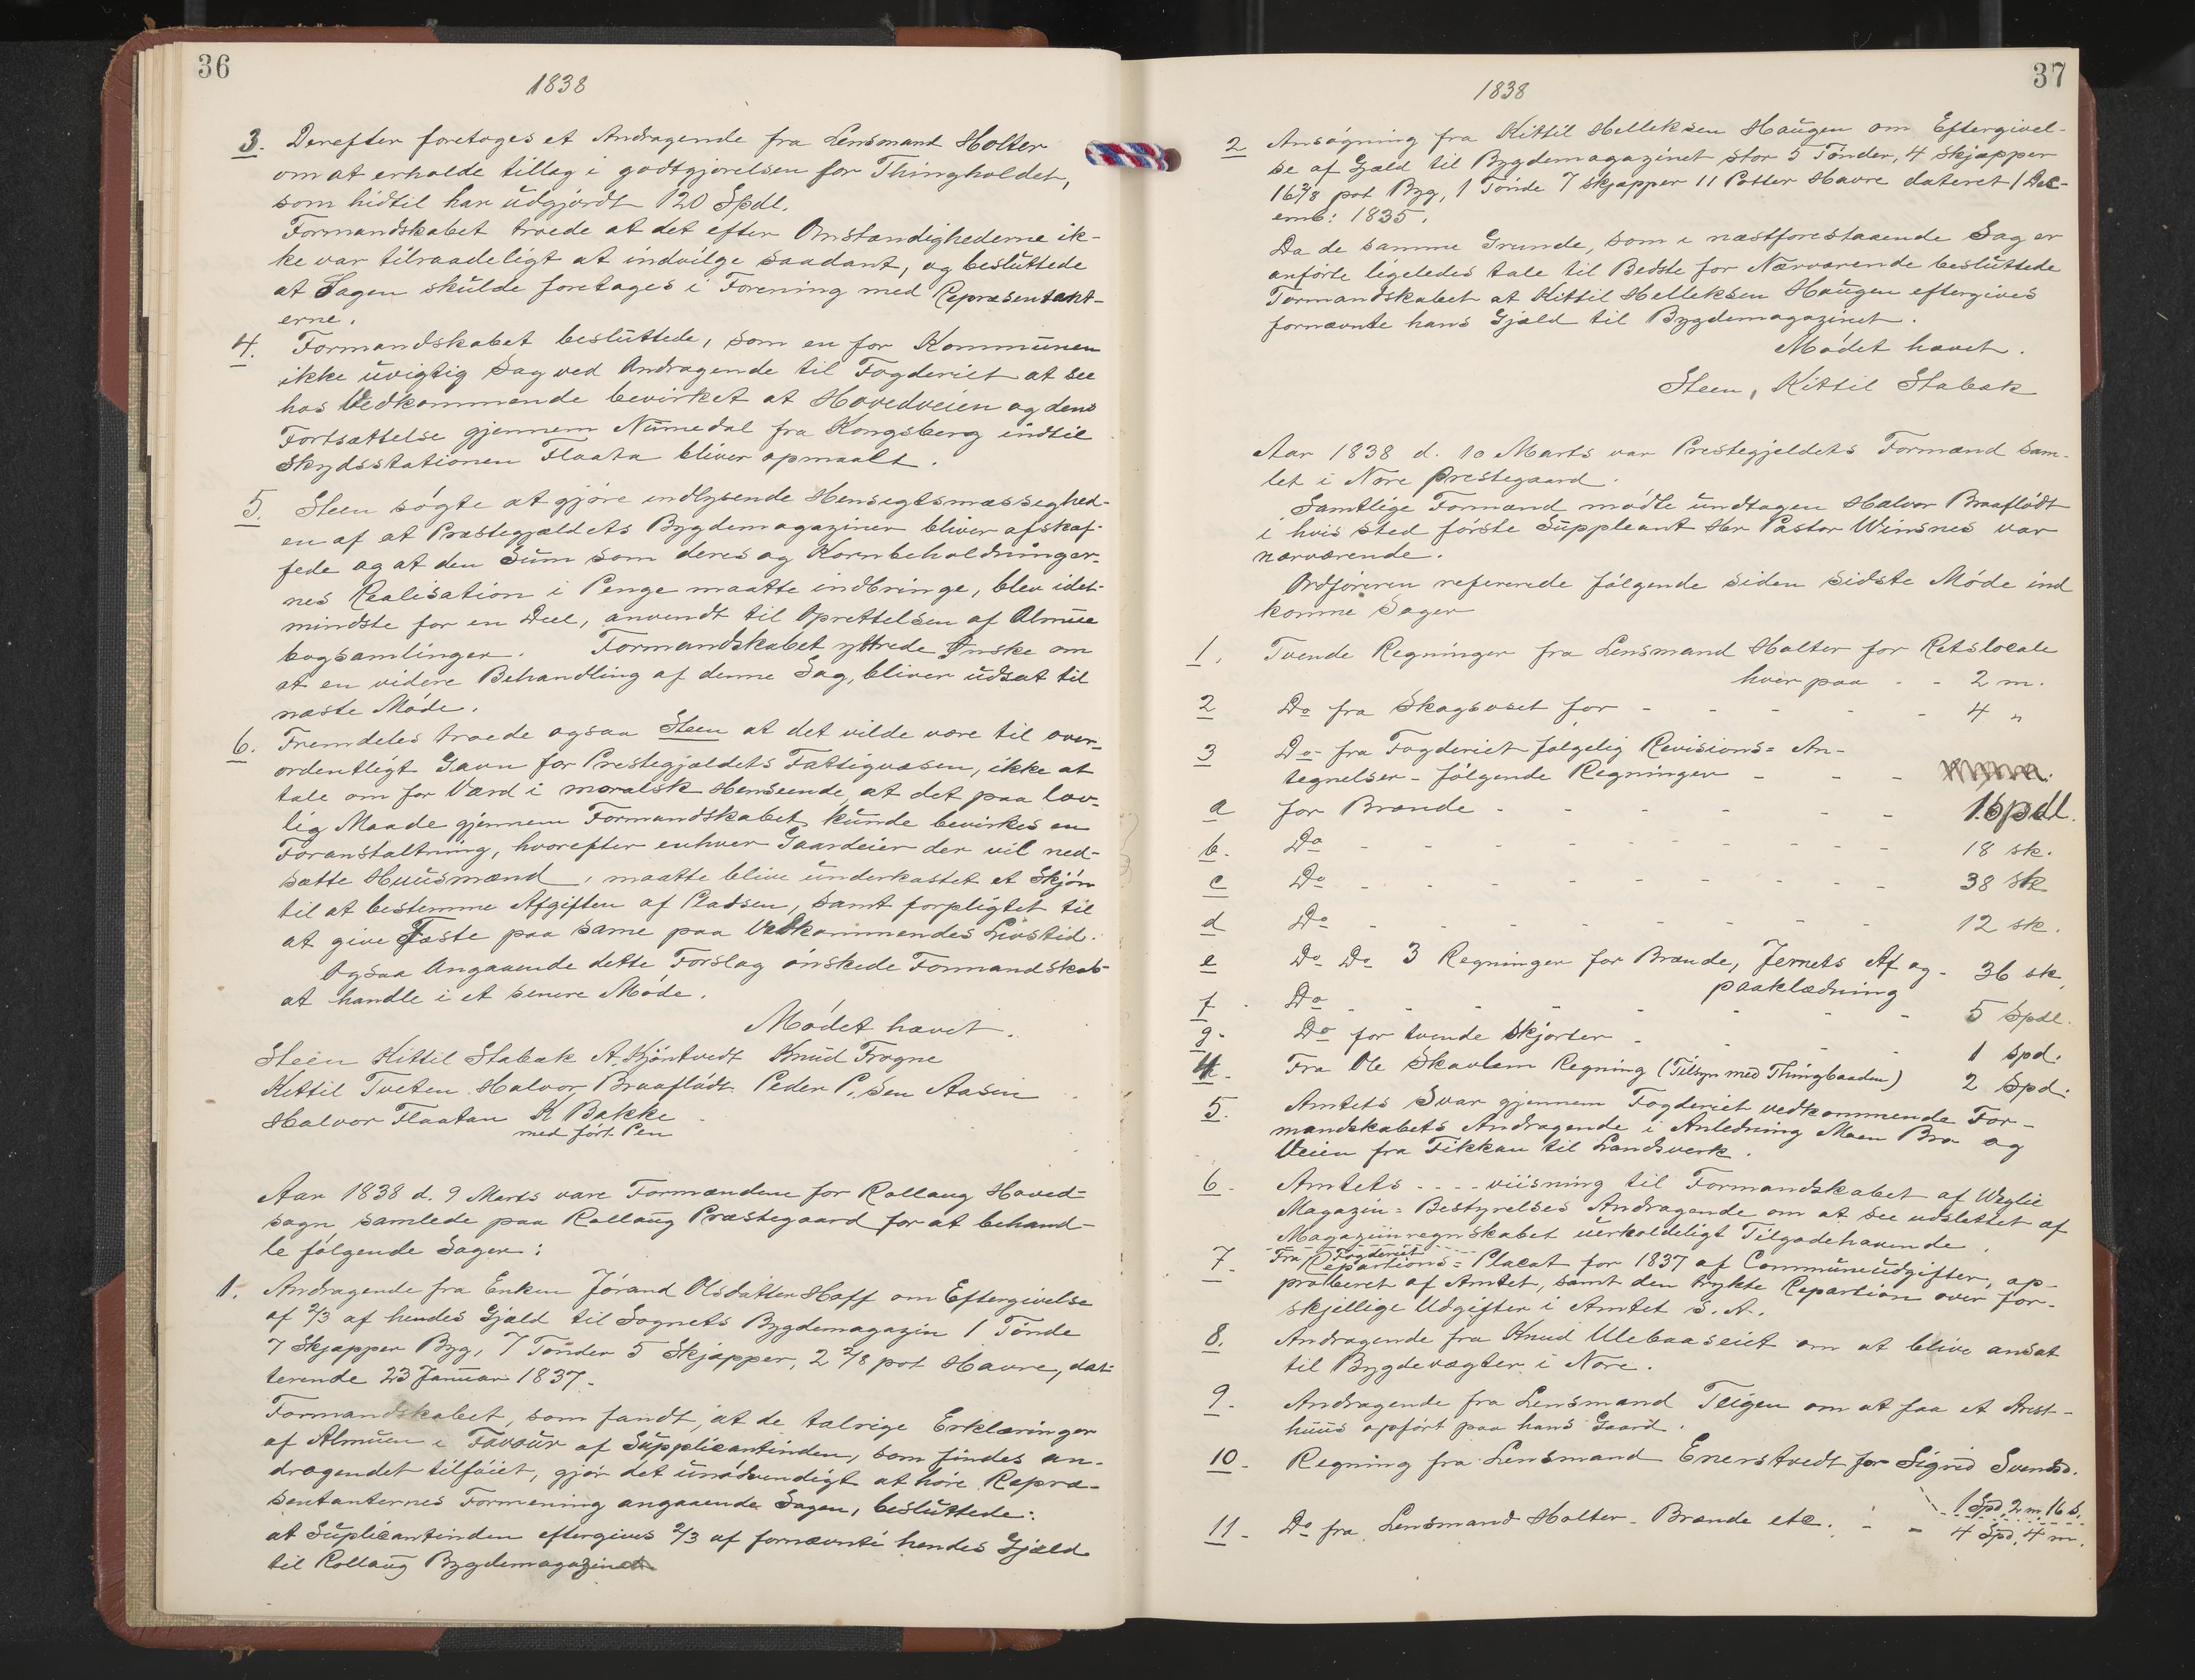 36
1838
3. Derefter foretoges et Andragende fra Lensmand Holter
om at erholde tillæg i godtgjørelsen for Thingholdet,
som hidtil har udgjordt 120 Spdl.
Formandskabet troede at det efter Omstændighederne ik-
ke var tilraadeligt at indvilge saadant, og besluttede
at Sagen skulde foretages i Forening med Repræsentant-
erne.
4. Formandskabet besluttede, som en for Kommunen
ikke uvigtig Sag ved Andragende til Fogderiet at see
hos Vedkommende bevirket at Hovedveien og dens
Fortsættelse gjennem Numedal fra Kongsberg indtil
Skydsstationen Flaata bliver opmaalt.
5. Steen søgte at gjøre indlysende Hensigtsmæssighed-
en af at Præstegjældets Bygdemagaziner bliver afskaf-
fede og at den Sum som deres og Kornbeholdninger-
nes Realisation i Penge maatte indbringe, blev idet-
mindste for en Deel, anvendt til Oprettelsen af Almue
bogsamlinger. Formandskabet yttrede Ønske om
at en videre Behandling af denne Sag, bliver udsat til
næste Møde.
6. Fremdeles troede ogsaa Steen at det vilde være til over-
ordentligt Gavn for Prestegjældets Fattigvæsen, ikke at
tale om for Værd i moralsk Henseende at det paa lov-
lig Maade gjennem Formandskabet kunde bevirkes en
Foranstaltning, hvorefter enhver Gaardeier der vil ned-
sætte Huusmænd, maatte blive underkastet et Skjøn
til at bestemme Afgiften af Pladsen, samt forpligtet til
at give Fæste paa same paa Vedkommendes Livstid.
Ogsaa Angaaende dette Forslag ønskede Formandskab-
at handle i et senere Møde.
Mødet hævet.
Steen Kittil Stabæk A. Kjøntvedt Knud Frogne
Kittil Tveten Halvor Braaflødt Peder P. Sen Aasen
Halvor Flaatan K Bakke
med ført Pen
Aar 1838 d. 9 Marts vare Formændene for Rollaug Hoved-
sogn samlede paa Rollaug Præstegaard for at behand-
le følgende Sager:
1. Andragende fra Enken Jørand Olsdatter Hoff om Eftergivelse
af 2/3 af hendes Gjæld til Sognets Bygdemagazin 1 Tønde
7 Skjæpper Byg, 7 Tønder 5 Skjæpper, 2 2/8 pot Havre, dat-
terende 23 Januar 1837.
Formandskabet, som fandt, at de talrige Erklæringer
af Almuen i Favour af Supplicantinden, som findes an-
dragendet tilføiet, gjør det unødvendigt at høre Repræ-
sentanternes Formening angaaende Sagen, besluttede:
at Suplicantinden eftergives 2/3 af fornævnte hendes Gjæld
til Rollaug Bygdemagazinet
37
1838
2 Ansøgning fra Kittil Helleksen Haugen om Eftergivel-
se af Gjæld til Bygdemagazinet stor 5 Tønder, 4 Skjæpper
16 2/8 pot Byg, 1 Tønde 7 Skjæpper 11 Potter Havre dateret 1 Dec-
emb: 1835.
Da de samme Grunde, som i næstforestaaende Sag er
anførte ligeledes tale til Bedste for Nærværende besluttede
Formandskabet at Kittil Helleksen Haugen eftergives
fornævnte hans Gjæld til Bygdemagazinet.
Mødet hævet.
Steen, Kittil Stabæk
Aar 1838 d. 10 Marts var Prestegjeldets Formænd sam-
let i Nore prestegaard.
Samtlige Formænd mødte undtagen Halvor Braaflødt
i hvis sted første Suppleant Hr Pastor Winsnes var
nærværende.
Ordføreren refererede følgende siden sidste Møde ind
komne Sager
1. Tvende Regninger fra Lensmand Holter for Retslocale
hver paa - - 2 m.
2 Do fra Skogsoset for - - - - - 4 "
3 Do fra Fogderiet følgelig Revisions= An-
tegnelser - følgende Regninger - - -
a for Brænde - - - - - 1 Spdl.
b. Do - - - - - 18 sk.
c Do - - - - - 38 sk
d Do - - - - - 12 sk.
e Do Do 3 Regninger for Brænde, Jernets Af og - 36 sk,
paaklædning
f. Do - - - - - 5 Spdl.
g. Do for tvende Skjorter - - - 1 Spd.
4. Fra Ole Skavlem Regning (Tilsyn med Thingbaaden) 2 Spd.
5. Amtets Svar gjennem Fogderiet vedkommende For-
mandskabets Andragende i Anledning Moen Bro og
Veien fra Fikkan til Landsverk.
6. Amtets - - - - viisning til Formandskabet af Weglie
Magazin= Bestyrelses Andragende om at see udslettet af
Magaziinregnskabet uerholdeligt Tilgodehavende.
7. Fra Fogderiet - - -
Repartions= Placat for 1837 af Communeudgifter, ap-
proberet af Amtet, samt den trykte Repartion over for-
skjellige Udgifter i Amtet s. A.
8. Andragende fra Knud Ulebaaseiet om at blive ansat
til Bygdevægter i Nore.
9. Andragende fra Lensmand Teigen om at faa et Arest-
huus opført paa hans Gaard.
10. Regning fra Lensmand Enerstvedt for Sigrid Svensd.
1 Spd, 2 m, 16 s.
11. Do fra Lensmand Holter - Brænde etc. - - 4 Spd, 4 m.